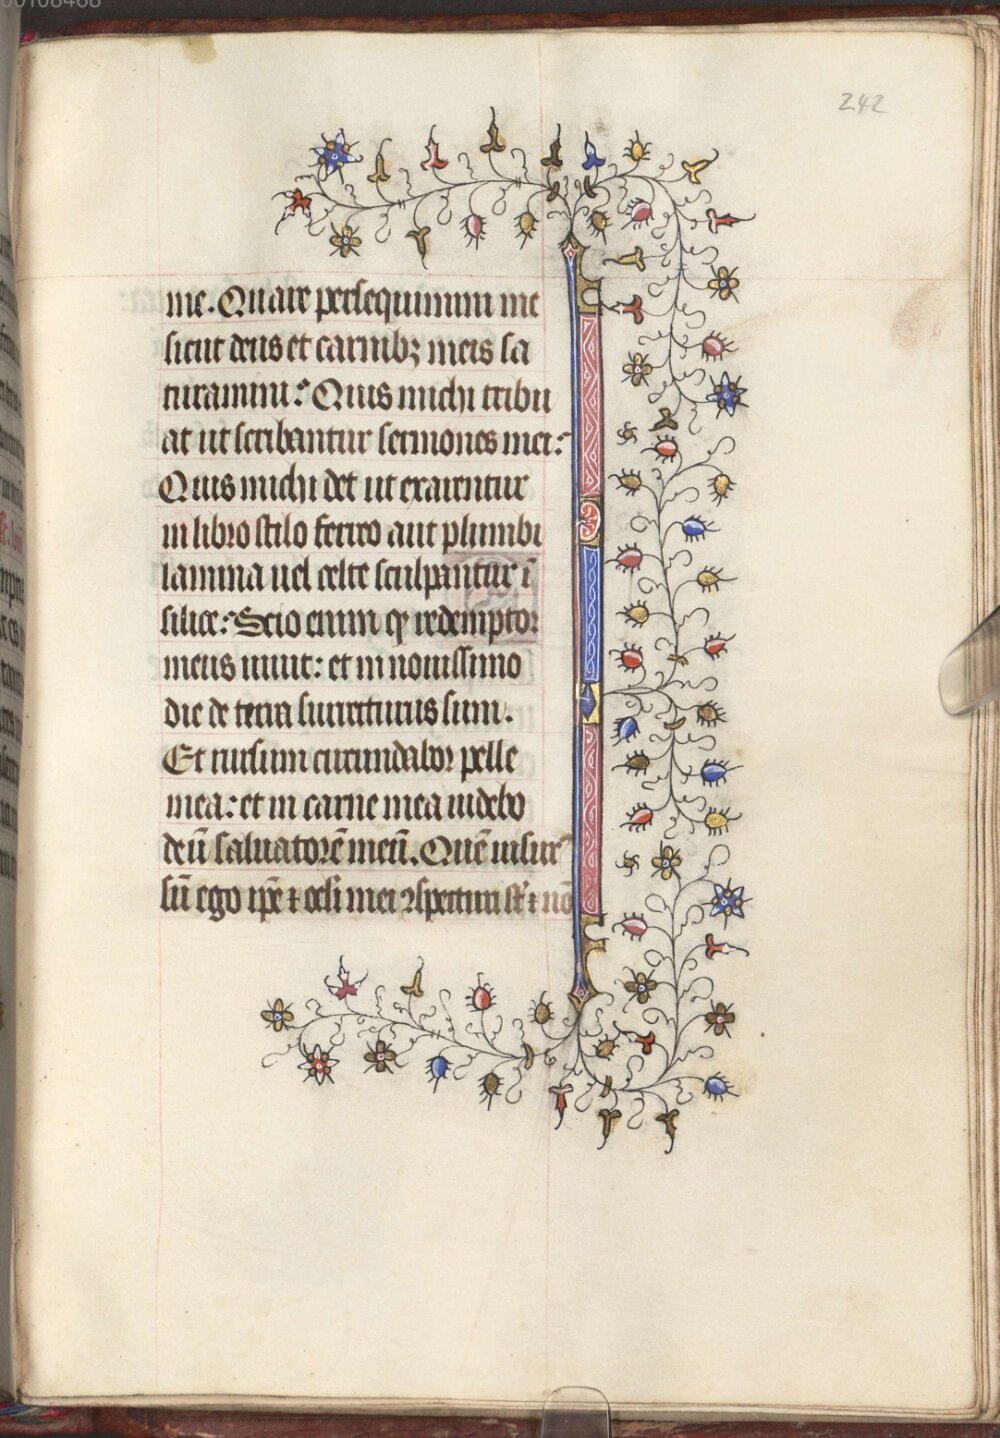 00108468
242
me. Quare persequimini me
sicut deus et carnibꝫ meis sa
turamini: Quis michi tribu
at ut scribantur sermones mei:
Quis michi det ut exarentur
in libro stilo ferreo aut plumbi
lamina uel celte sculpantur ī
silice: Scio enim qꝫ redemptor
meus uiuit: et in nouissimo
die de terra surrecturus sum.
Et rursum circumdabor pelle
mea: et in carne mea uidebo
deū saluatorē meū. Quē uisur⁹
sū ego ip̄e ⁊ oc̄li mei ꝯspecturi st̄ ⁊ nō